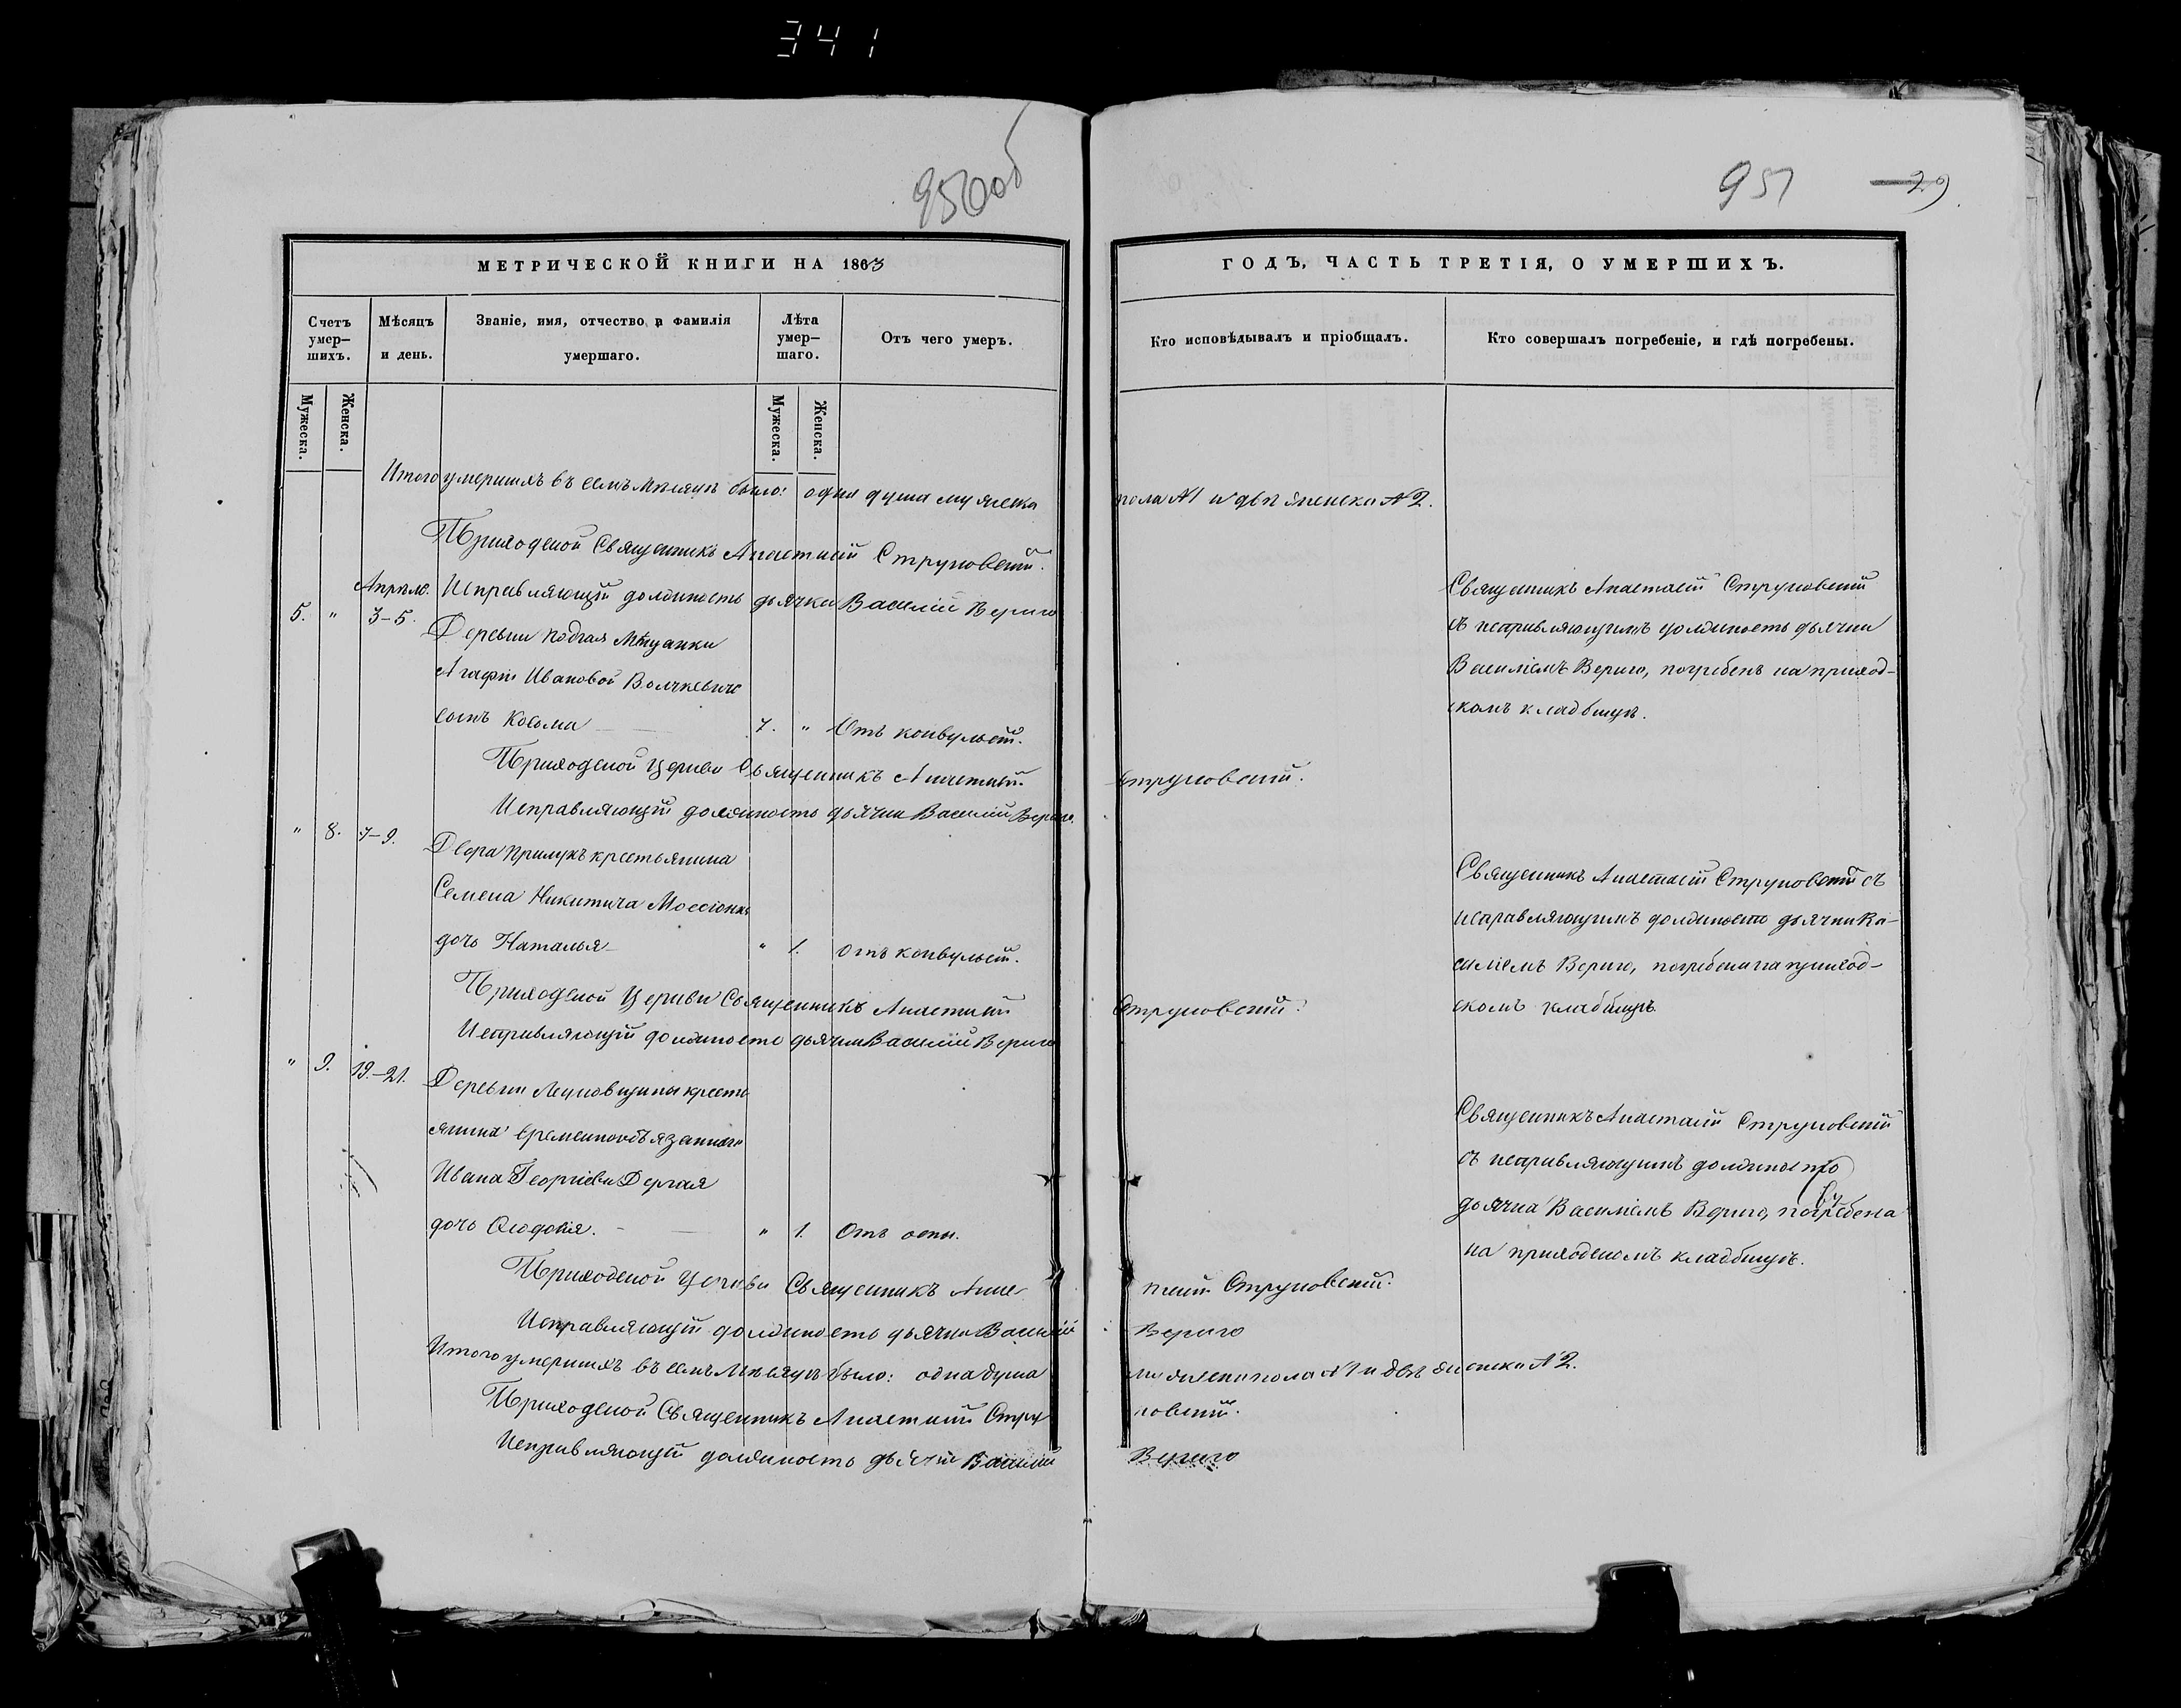 341
950об
951 29
МЕТРИЧЕСКОЙ КНИГИ НА 1863
ГОДЪ, ЧАСТЬ ТРЕТІЯ, О УМЕРШИХЪ.
Счетъ умер-шихъ.
Мѣсяцъ и день.
Званіе, имя, отчество и фамилія умершаго.
Лѣта умер-шаго.
Отъ чего умеръ.
Кто исповѣдывалъ и пріобщалъ.
Кто совершалъ погребеніе, и гдѣ погребены.
Мужеска.
Женска.
Мужеска.
Женска.
Итого умершихъ въ семъ мѣсяцѣ было: одна душа мужеска пола №1 и двѣ женска №2.
Приходской Священникъ Анастасій Струковскій.
Исправляющій должность дьячка Василій Вериго
Апрѣль.
5. " 3-5.
Деревни мѣщанки
Агафіи Ивановой Волчкевичъ
сынъ Косьма 7. " Отъ конвульсій.
Священникъ Анастасій Струковскій
съ исправляющимъ должность дьячка
Василіемъ Вериго, погребенъ на приход-
скомъ кладбищѣ.
Приходской Церкви Священникъ Анастасій Струковскій.
Исправляющій должность дьячка Василій Вериго.
" 8. 7-9.
Двора Прилукъ крестьянина
Семена Никитича
дочь Наталья " 1. отъ конвульсій.
Священникъ Анастасій Струковскій съ
исправляющимъ должность дьячка Ва-
силіемъ Вериго, погребена на приход-
скомъ кладбищѣ.
Приходской Церкви Священникъ Анастасій Струковскій.
Исправляющій должность дьячка Василій Вериго
" 9. 19-21.
Деревни крестья
янина временнообязаннаго
Ивана Георгіева Дергая
дочь Ѳеодосія. " 1. Отъ оспы.
Священникъ Анастасій Струковскій
съ исправляющимъ должность
дьячка Василіемъ Вериго, погребена
на приходскомъ кладбищѣ.
Приходской Церкви Священникъ Анастасій Струковскій.
Исправляющій должность дьячка Василій Вериго
Итого умершихъ въ семъ мѣсяцѣ было: одна душа мужеска пола №1 и двѣ женска №2.
Приходской Священникъ Анастасій Струковскій.
Исправляющій должность дьячка Василій Вериго